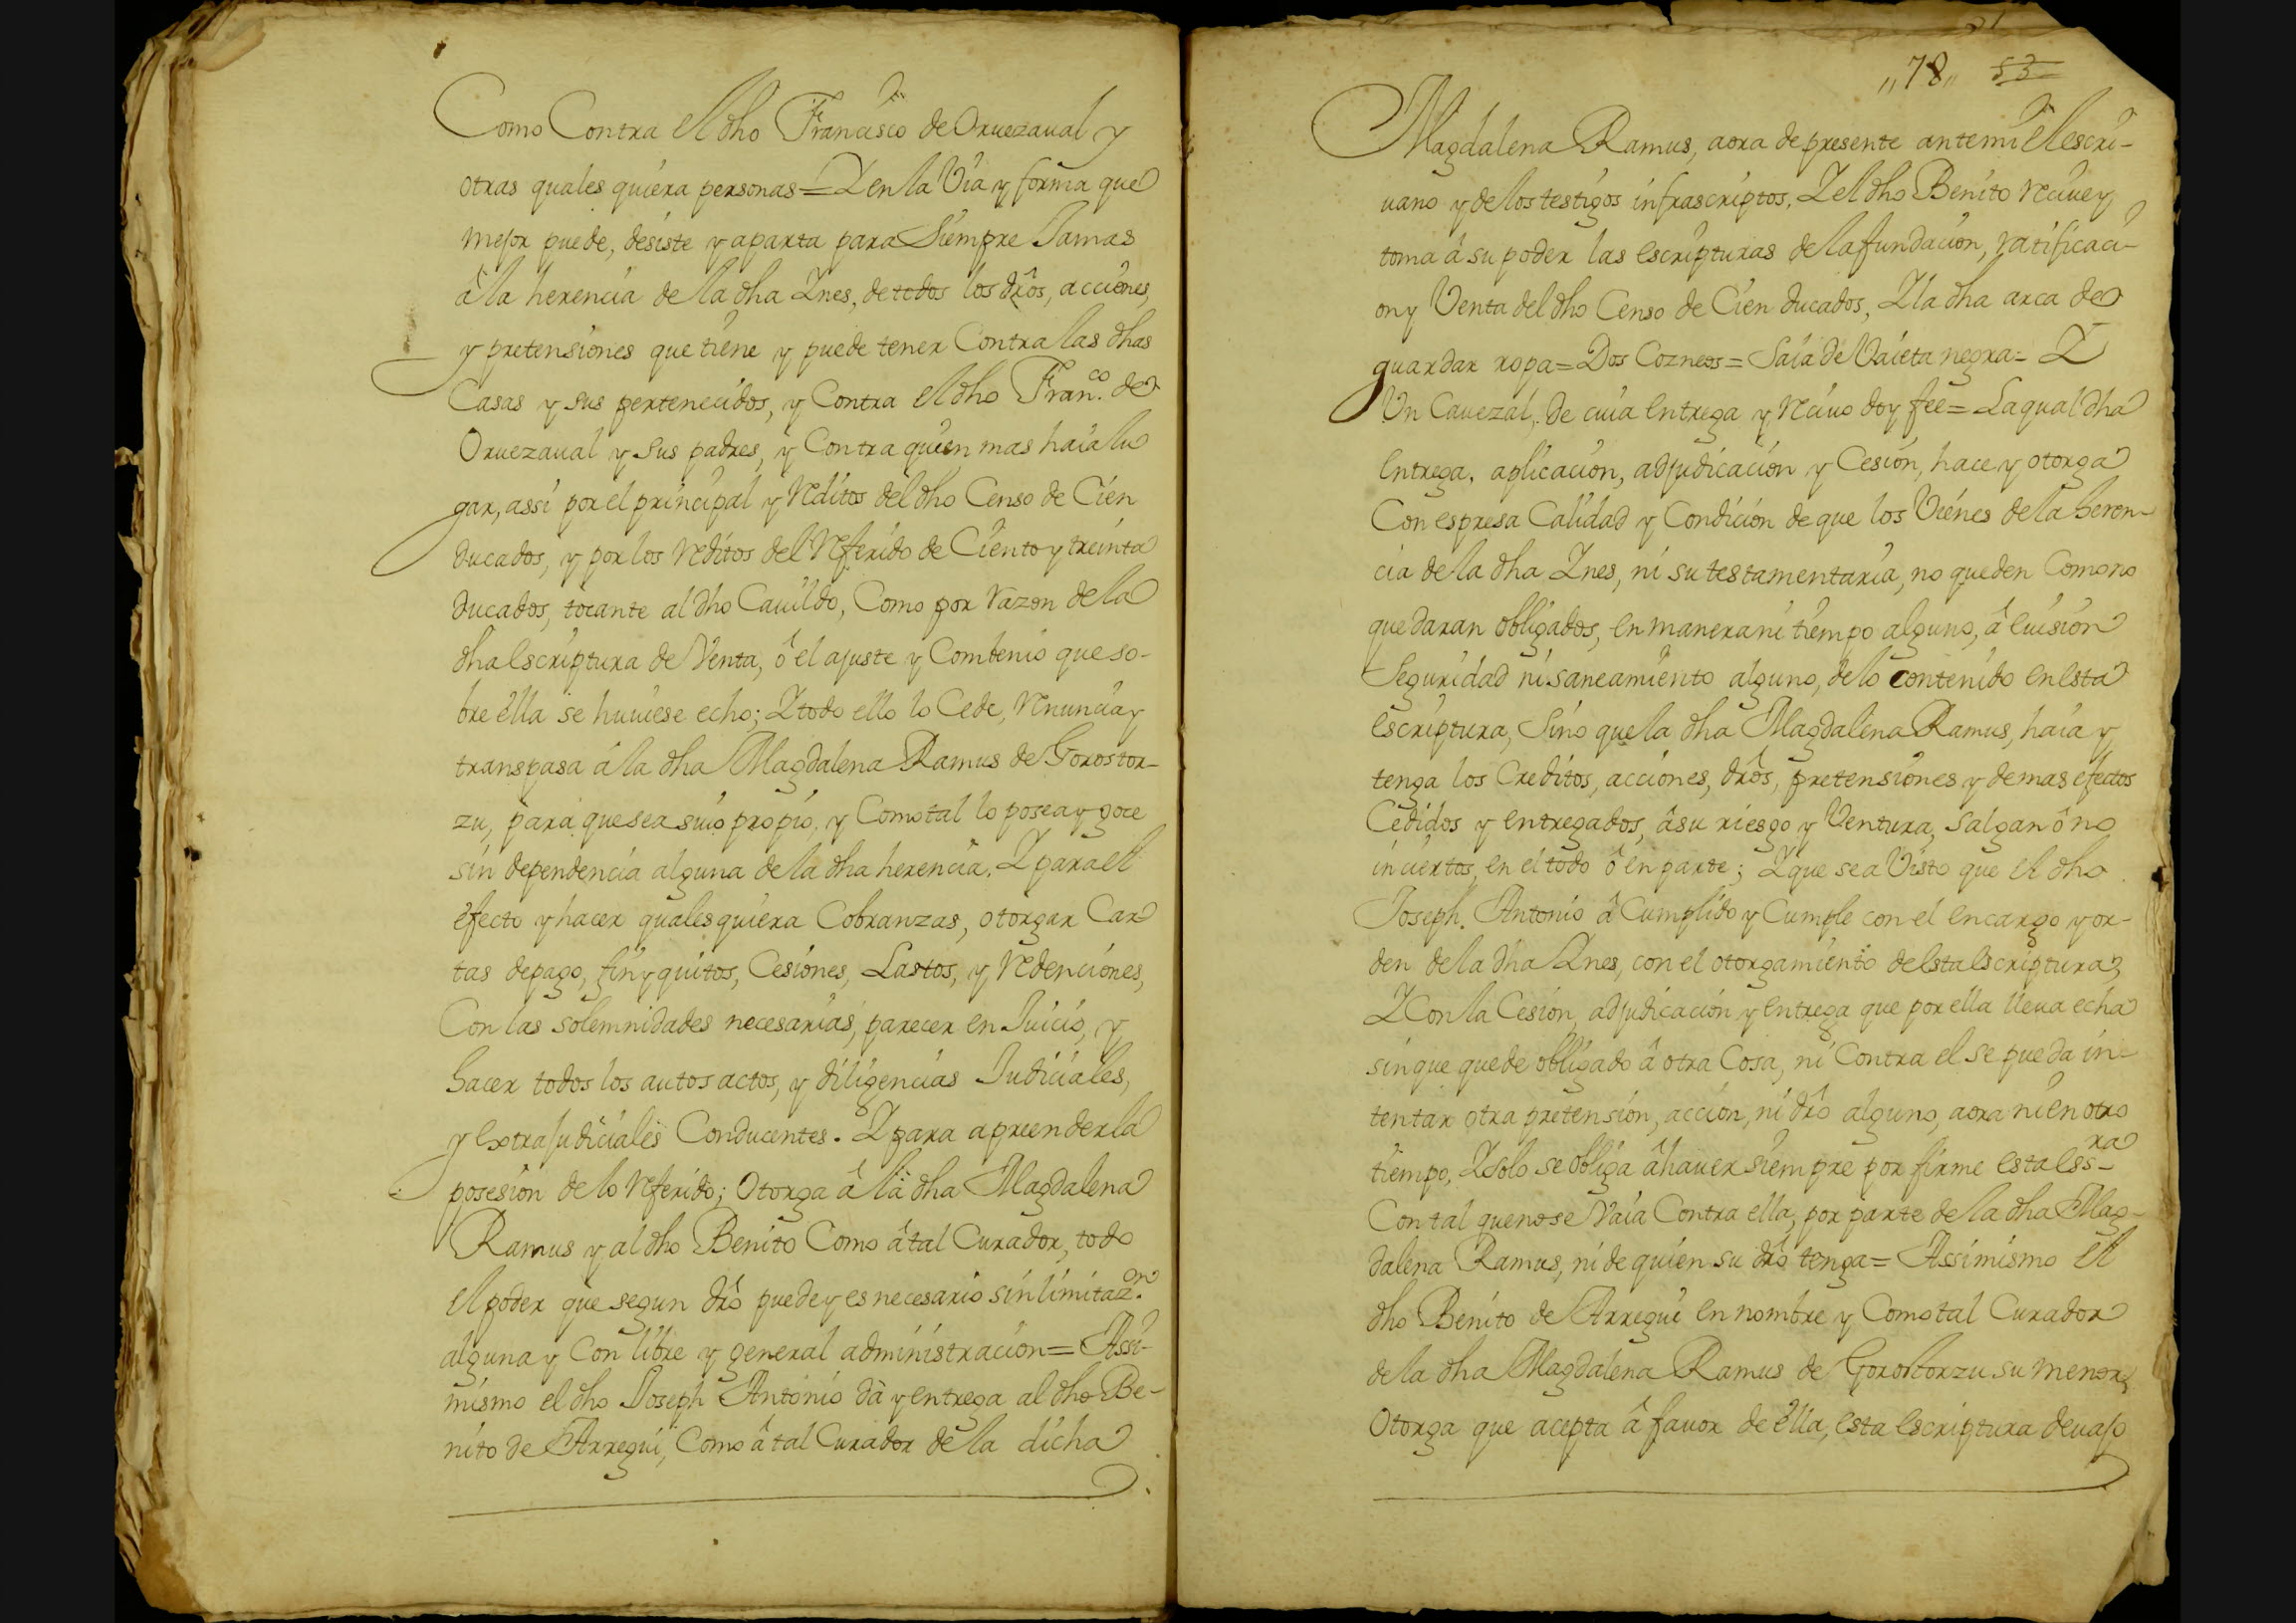 Como Contra el dho Francisco de Oruezaual y
otras quales quiera personas = Y en la Via y forma que
mejor puede, desiste y aparta para Siempre Jamas
â la herencia de la dha Ynes, de todos los drôs, acciones,
y pretensiones que tiene y puede tener Contra las dhas
Casas y sus pertenecidos, y Contra el dho Fran.co de
Oruezaual y sus padres, y Contra quien mas haia lu
gar, assi por el principal y Reditos del dho Censo de Cien
ducados, y por los Reditos del Referido de Ciento y treinta
ducados, tocante al dho Cauildo, Como por Razon de la
dha escriptura de Venta, ô el ajuste y Combenio que so-
bre ella se huuiese echo; Y todo ello lo Cede, Renuncia y
transpasa á la dha Magdalena Ramus de Gorostor-
zu, para que sea suio propio, y Como tal lo posea y goce
sin dependencia alguna de la dha herencia. Y para el
efecto y hacer quales quiera Cobranzas, otorgar Car
tas de pago, fin y quitos, Cesiones, Lastos, y Redenciones,
Con las solemnidades necesarias, parecer en Juicio, y
hacer todos los autos actos, y diligencias Judiciales,
y extrajudiciales Conducentes. Y para apreender la
posesion de lo Referido; Otorga â la dha Magdalena
Ramus y al dho Benito Como â tal Curador, todo
el poder que segun drô puede y es necesario sin limitaz.on
alguna y Con libre y general administracion = Assi-
mismo el dho Joseph Antonio dà y entrega al dho Be-
nito de Arregui, Como â tal Curador de la dicha
„78„ 53
Magdalena Ramus, aora de presente ante mi el escri-
uano y de los testigos infrascriptos, Y el dho Benito Reciue y
toma á su poder las escripturas de la fundacion, ratificaci-
on y Venta del dho Censo de Cien ducados, Y la dha arca de
guardar ropa = Dos Cozneos = Saia de Vaieta negra = Y
Vn Cauezal, De cuia entrega y Reciuo doy fee = La qual dha
entrega, aplicacion, adjudicacion y Cesion, hace y otorga
Con espresa Calidad y Condicion de que los Vienes de la heren-
cia de la dha Ynes, ni su testamentaria, no queden Como no
quedaran obligados, en manera ni tiempo alguno, â euision
Seguridad ni saneamiento alguno, de lo contenido en esta
escriptura, Sino que la dha Magdalena Ramus, haia y
tenga los Creditos, acciones, drôs, pretensiones y demas efectos
Cedidos y entregados, â su riesgo y Ventura, salgan ô no
inciertos, en el todo ô en parte; Y que sea Visto que el dho
Joseph. Antonio â Cumplido y Cumple con el encargo y or-
den de la dha Ynes, con el otorgamiento de esta escriptura,
Y Con la Cesion, adjudicacion y entrega que por ella lleua echa
sin que quede obligado â otra Cosa, ni Contra el se pueda in-
tentar otra pretension, accion, ni drô alguno, aora ni en otro
tiempo, Y solo se obliga â hauer siempre por firme esta ess-ra
Con tal que no se Vaia Contra ella, por parte de la dha Mag-
dalena Ramus, ni de quien su drô tenga = Assimismo el
dho Benito de Arregui en nombre y Como tal Curador
de la dha Magdalena Ramus de Gorostorzu su menor,
Otorga que acepta â fauor de ella, esta escriptura deuajo